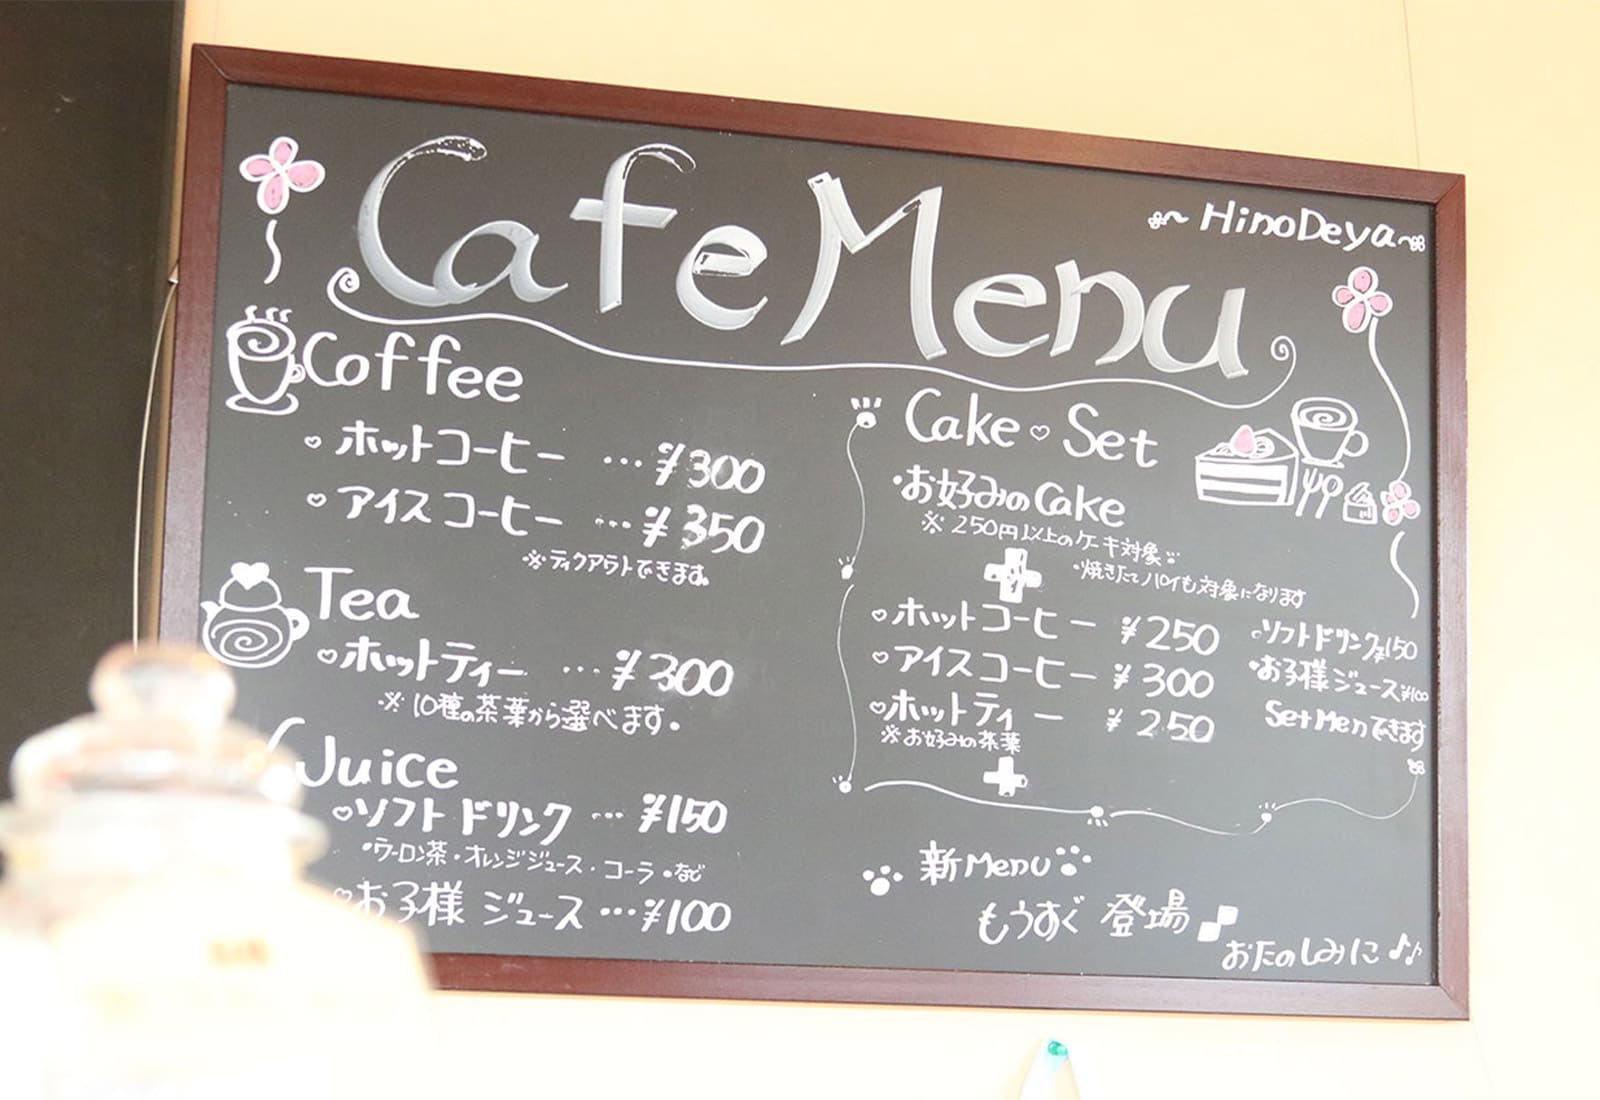 Cafe Menu
HinoDeya
Coffee
ホットコーヒー …¥300
アイスコーヒー …¥350
※ティクアウトできます。
Tea
ホットティー …¥300
※10種の茶葉から選べます。
Juice
ソフトドリンク …¥150
・ウーロン茶・オレンジジュース・コーラ・など
お子様ジュース …¥100
Cake♡Set
・お好みのCake
※250円以上のケーキ対象
・焼きたてパイも対象になります
ホットコーヒー ¥250
アイスコーヒー ¥300
ホットティー ¥250
※お好みの茶葉
ソフトドリンク¥150
・お子様ジュース¥100
SetMenできます
新Menu
もうすぐ登場
おたのしみに♪♪